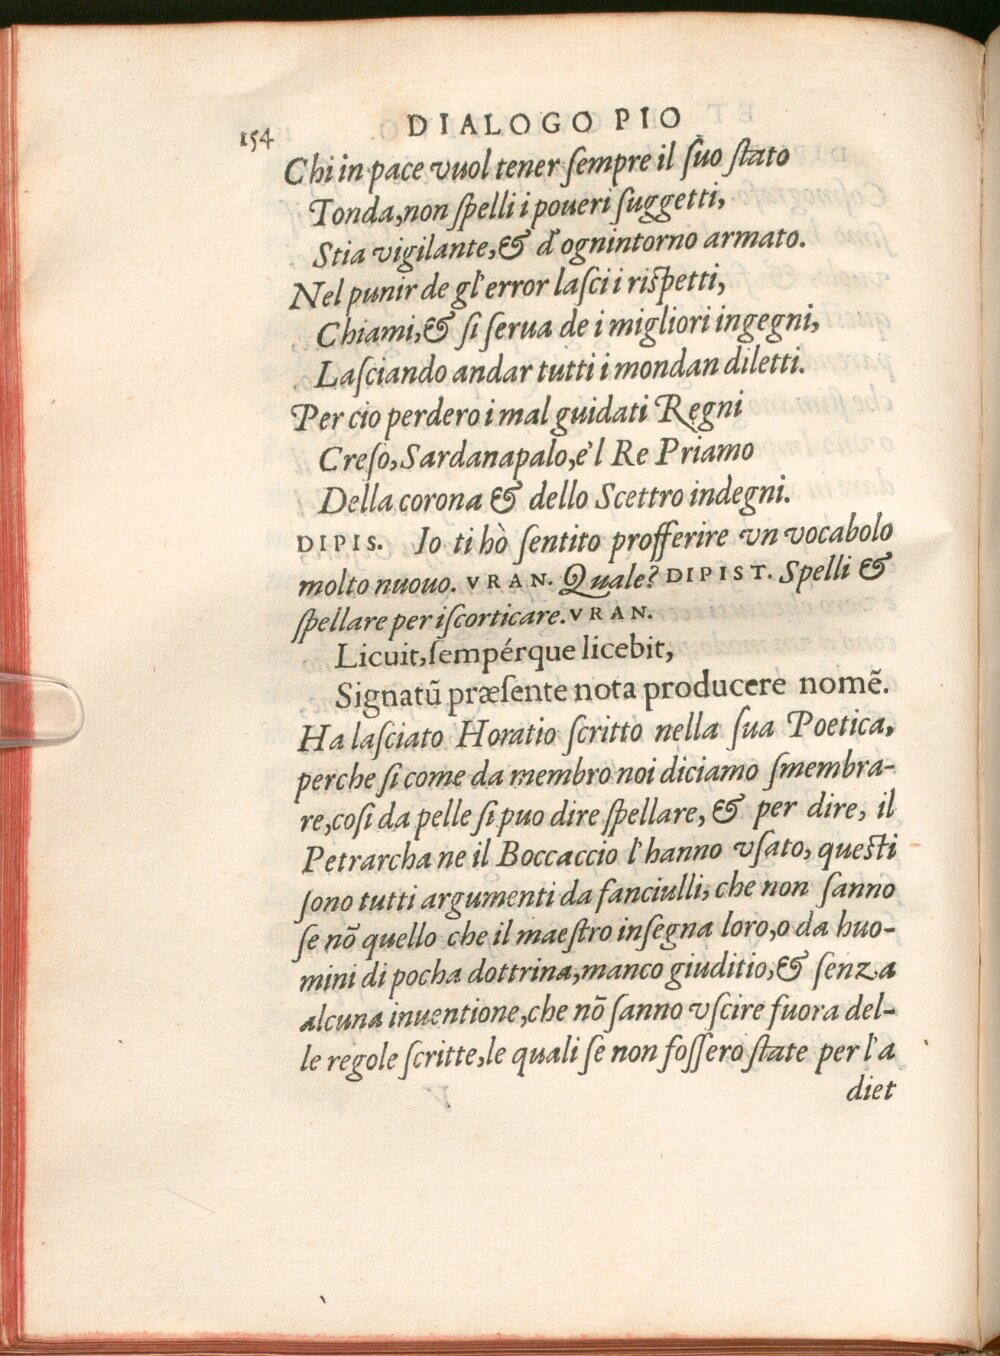 154
DIALOGO PIO
Chi in pace vuol tener sempre il suo stato
Tonda,non spelli i poueri suggetti,
Stia vigilante,& d'ognintorno armato.
Nel punir de gl'error lasci i rispetti,
Chiami,& si serua de i migliori ingegni,
Lasciando andar tutti i mondan diletti.
Per cio perdero i mal guidati Regni
Creso,Sardanapalo,e'l Re Priamo
Della corona & dello Scettro indegni.
DIPIS. Io ti hò sentito profferire vn vocabolo
molto nuouo. VRAN. Quale? DIPIST. Spelli &
spellare per iscorticare. VRAN.
Licuit,sempérque licebit,
Signatū præsente nota producere nomē.
Ha lasciato Horatio scritto nella sua Poetica,
perche si come da membro noi diciamo smembra-
re,cosi da pelle si puo dire spellare, & per dire, il
Petrarcha ne il Boccaccio l'hanno vsato, questi
sono tutti argumenti da fanciulli, che non sanno
se nō quello che il maestro insegna loro,o da huo-
mini di pocha dottrina,manco giuditio,& senza
alcuna inuentione,che nō sanno vscire fuora del-
le regole scritte,le quali se non fossero state per l'a
diet